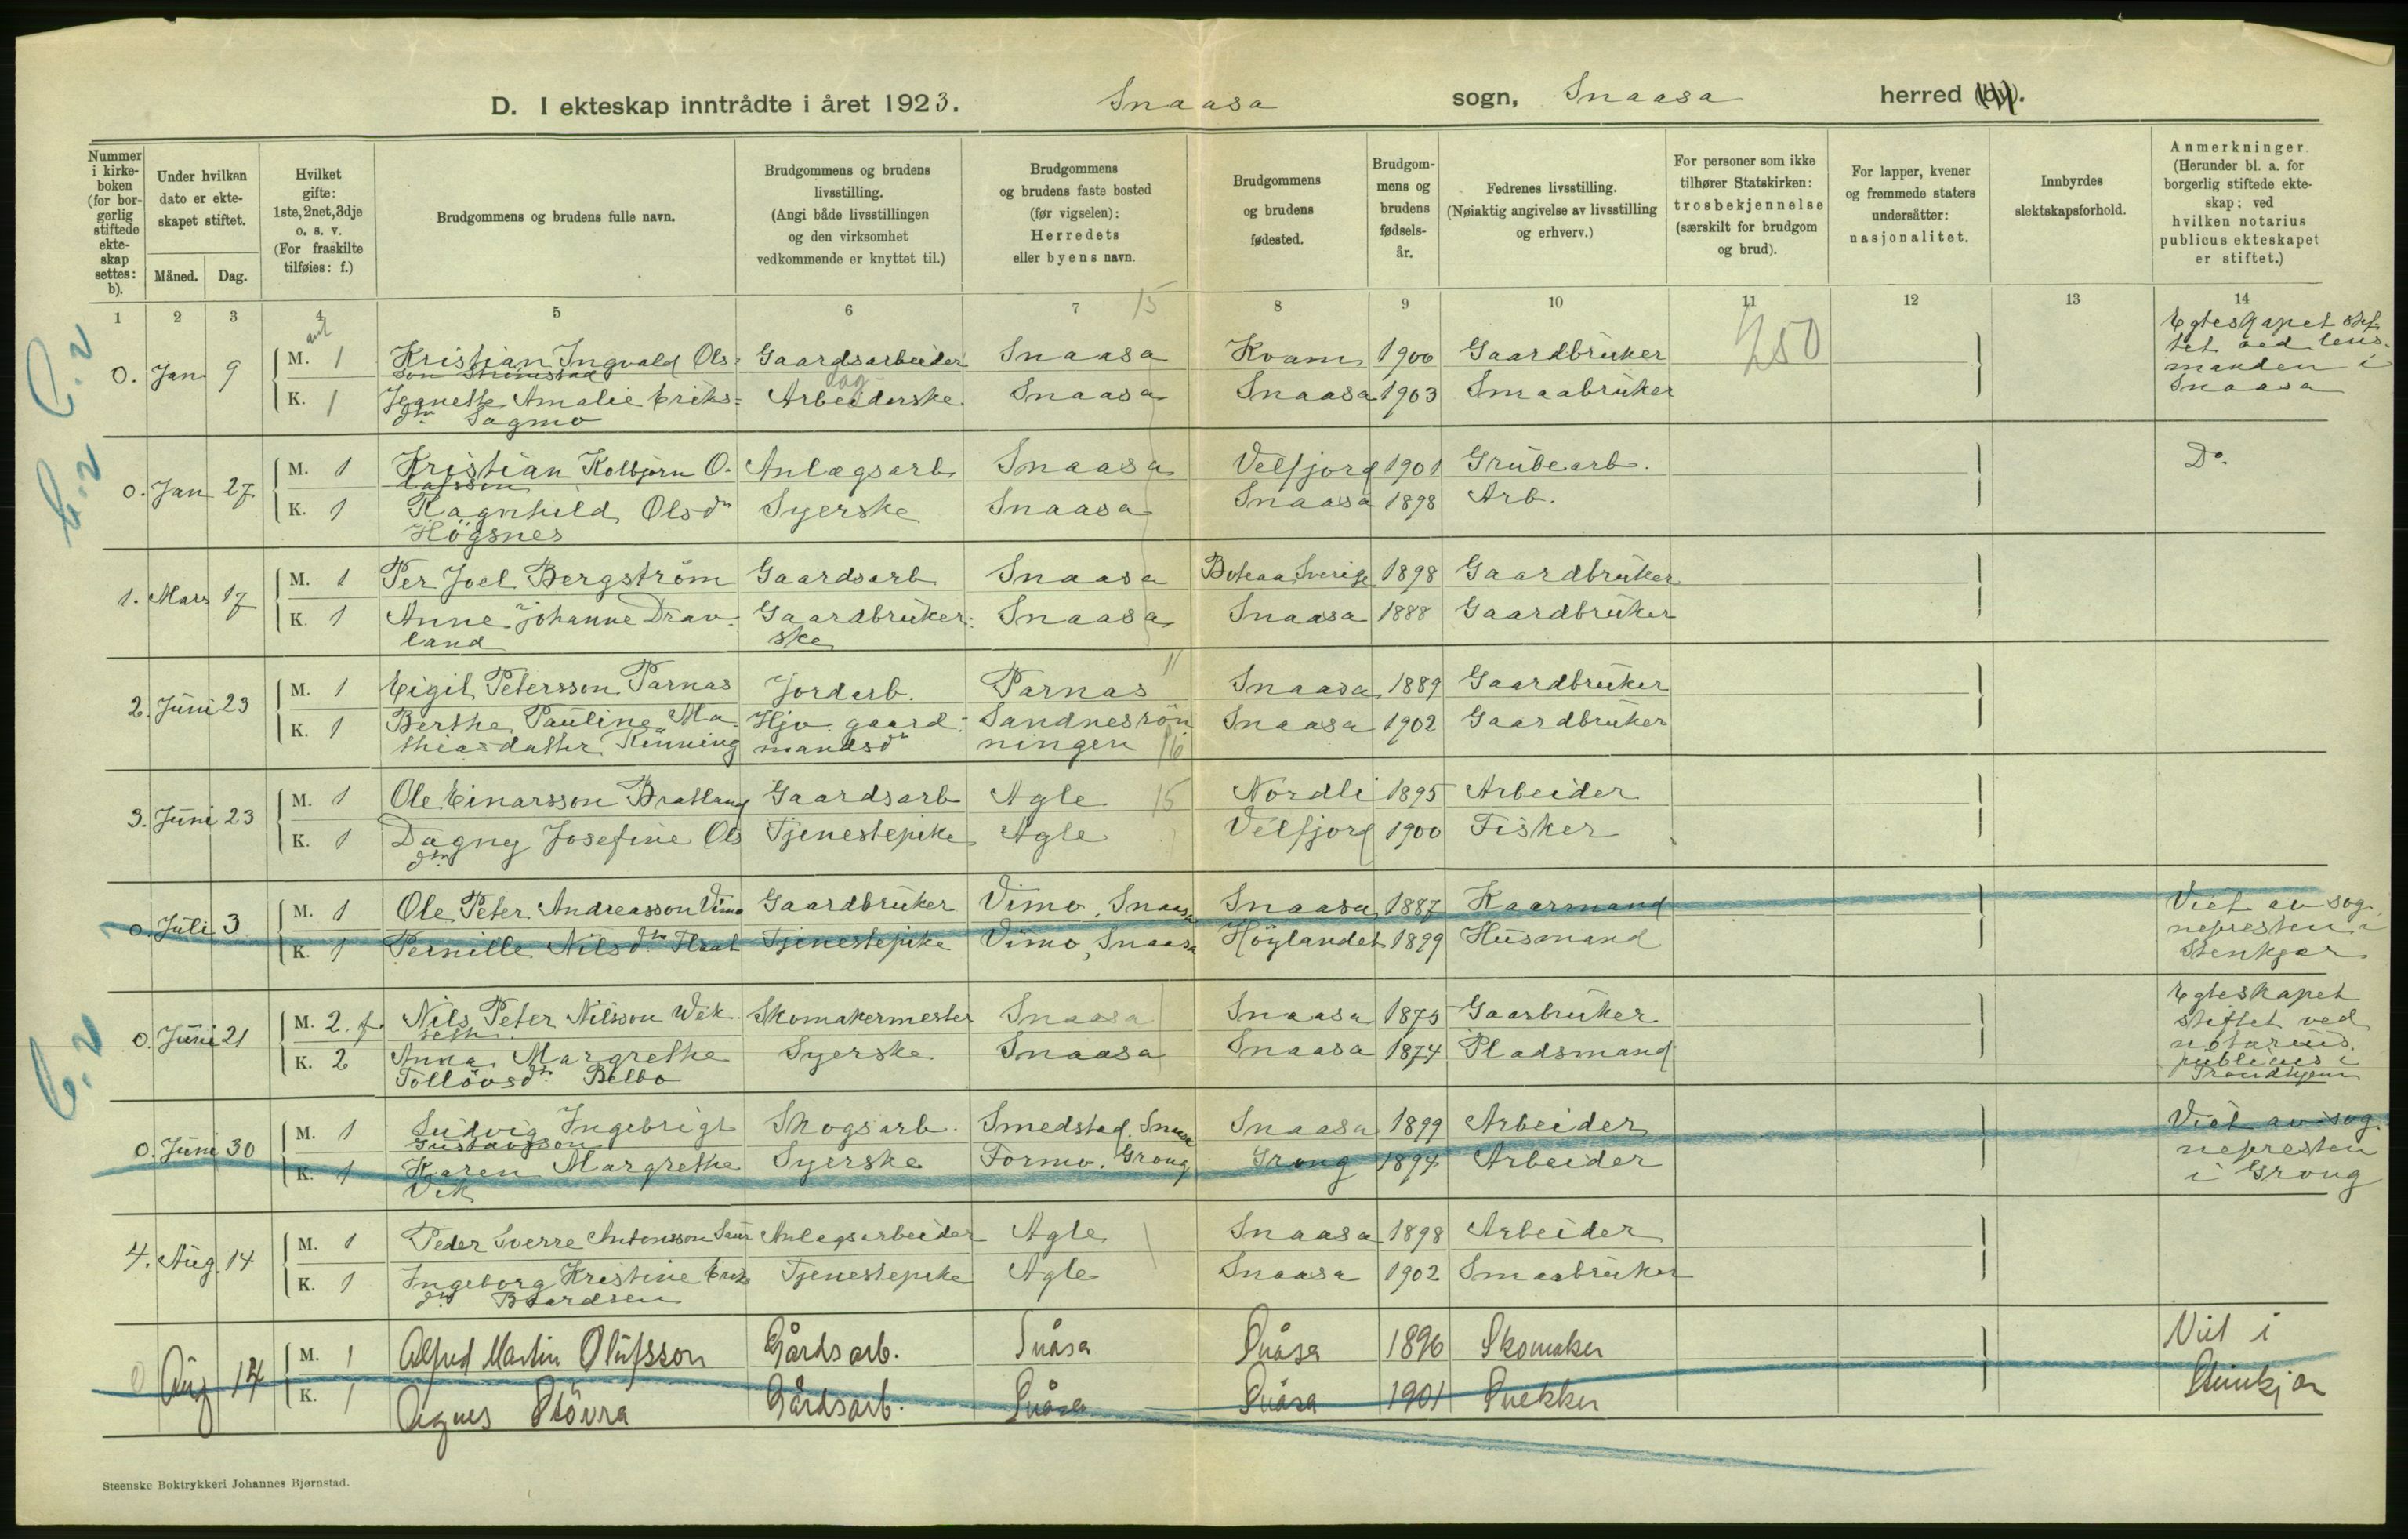 D. I ekteskap inntrådte i året 1923. Snaasa sogn, Snaasa herred (by).
Nummer i kirkeboken (for borgerlig stiftede ekteskap settes: b).
Under hvilken dato er ekteskapet stiftet.
Måned. Dag.
Hvilket gifte: 1ste, 2net, 3dje o. s. v. (For fraskilte tilføies: f.)
Brudgommens og brudens fulle navn.
Brudgommens og brudens livsstilling. (Angi både livsstillingen og den virksomhet vedkommende er knyttet til.)
Brudgommens og brudens faste bosted (før vigselen): Herredets eller byens navn.
Brudgommens og brudens fødested.
Brudgommens og brudens fødselsår.
Fedrenes livsstilling. (Nøiaktig angivelse av livsstilling og erhverv.)
For personer som ikke tilhører Statskirken: trosbekjennelse (særskilt for brudgom og brud).
For lapper, kvener og fremmede staters undersåtter: nasjonalitet.
Innbyrdes slektskapsforhold.
Anmerkninger. (Herunder bl. a. for borgerlig stiftede ekteskap: ved hvilken notarius publicus ekteskapet er stiftet.)
1 2 3 4 5 6 7 8 9 10 11 12 13 14
15
250
0. Jan 9 M. 1 Kristian Ingvald Ols- Gaardsarbeider Snaasa Kvam 1900 Gaardbruker Egteskapet stif-
son Strömstad tet ved lens-
manden i
K. 1 Jeanette Amalie Eriks- Arbeiderske Snaasa Snaasa 1903 Smaabruker Snaasa
dtr Sagmo
0. Jan 27 M. 1 Kristian Kolbjørn O- Anlægsarb Snaasa Velfjord 1901 Grubearb. Do.
lafsson
K. 1 Ragnhild Olsdtr Syerske Snaasa Snaasa 1898 Arb.
Högsnes
1. Mars 17 M. 1 Per Joel Bergström Gaardsarb Snaasa Boteaa, Sverige 1898 Gaardbruker
K. 1 Anne Johanne Drav- Gaardbruker- Snaasa Snaasa 1888 Gaardbruker
land ske
2. Juni 23 M. 1 Eigil Petersson Parnas Jordarb. Parnas 11 Snaasa 1889 Gaardbruker
K. 1 Berthe Pauline Ma- Hjv. gaard- Sandnesrön Snaasa 1902 Gaardbruker
thiasdatter Rönning mandsdtr ningen 16
3. Juni 23 M. 1 Ole Einarsson Bratland Gaardsarb Agle 15 Nordli 1895 Arbeider
K. 1 Dagny Josefine Ols Tjenestepike Agle Velfjord 1900 Fisker
dtr
0. Juli 3 M. 1 Ole Peter Andreasson Vimo Gaardbruker Vimo, Snaasa Snaasa 1887 Kaarmand Viet av sog-
K. 1 Pernille Nilsdtr Flaat Tjenestepike Vimo, Snaasa Höylandet 1899 Husmand nepresten i
Stenkjær
0. Juni 21 M. 2. f. Nils Peter Nilsson Wek- Skomakermester Snaasa Snaasa 1875 Gaarbruker Egteskapet
seth. stiftet ved
K. 2 Anna Margrethe Syerske Snaasa Snaasa 1874 Pladsmand notarius
Tollövsdtr Belbo publicus i
Trondhjem
0. Juni 30 M. 1 Ludvig Ingebrigt Skogsarb. Smedstad, Snaasa Snaasa 1899 Arbeider Viet av sog-
Gustavsson
K. 1 Karen Margrethe Syerske Formo, Grong Grong 1894 Arbeider nepresten
Vik i Grong
4. Aug. 14 M. 1 Peder Sverre Antonsson Saur Anlegsarbeider Agle Snaasa 1898 Arbeider
K. 1 Ingeborg Kristine Eriks Tjenestepike Agle Snaasa 1902 Smaabruker
dtr Baardsen
0 Aug 14 M. 1 Alfred Martin Olufsson Gårdsarb. Snåsa Snåsa 1896 Skomaker Viet i
K. 1 Agnes Stövra Gårdsarb. Snåsa Snåsa 1901 Snekker Steinkjær
Steenske Boktrykkeri Johannes Bjørnstad.